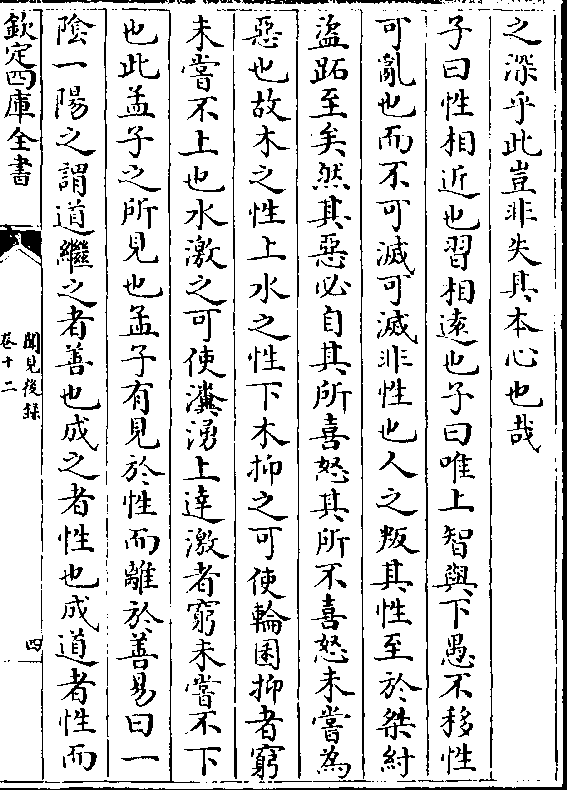 之深乎此豈非失其本心也哉
子曰性相近也習相遠也子曰唯上智與下愚不移性
可亂也而不可滅可滅非性也人之叛其性至於桀紂
盜跖至矣然其惡必自其所喜怒其所不喜怒未嘗為
惡也故木之性上水之性下木抑之可使輪囷抑者窮
未嘗不上也水激之可使瀵湧上達激者窮未嘗不下
也此孟子之所見也孟子有見於性而離於善易曰一
陰一陽之謂道繼之者善也成之者性也成道者性而
欽定四庫全書
聞見後録
卷十二
四